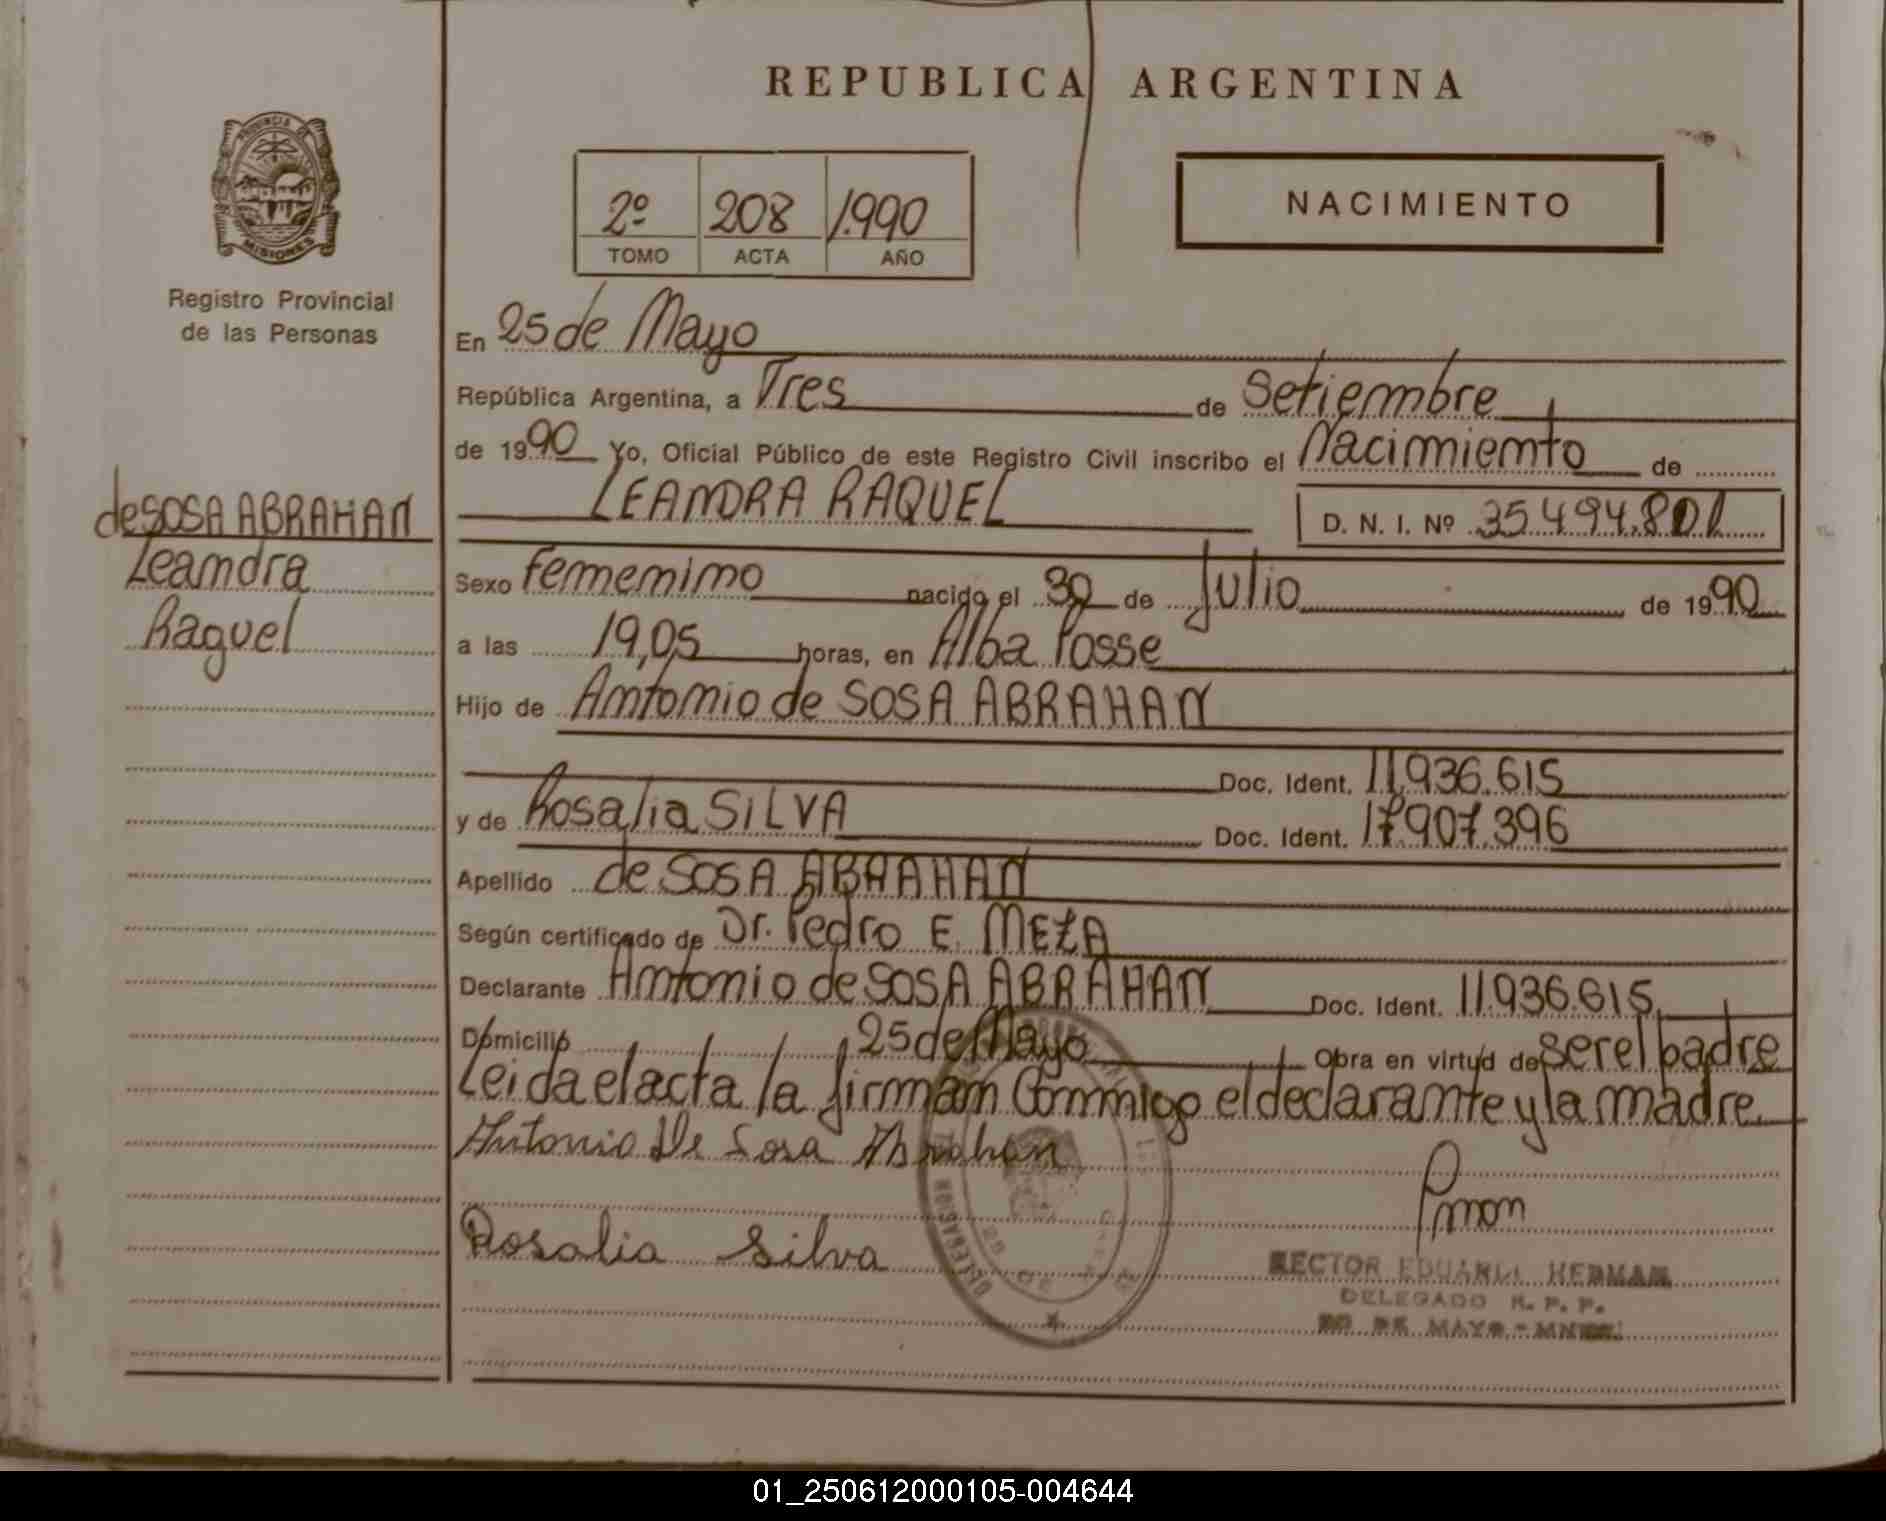 REPUBLICA ARGENTINA
PROVINCIA DE
MISIONES
Registro Provincial
de las Personas
2º 208 1.990
TOMO ACTA AÑO
NACIMIENTO
de SOSA ABRAHAN
Leandra
Raquel
En 25 de Mayo
República Argentina, a Tres de Setiembre
de 1990 Yo, Oficial Público de este Registro Civil inscribo el Nacimiento de
LEANDRA RAQUEL D. N. I. Nº 35.494.801
Sexo femenino nacido el 30 de Julio de 1990
a las 19,05 horas, en Alba Posse
Hijo de Antonio de SOSA ABRAHAN
Doc. Ident. 11.936.615
y de Rosalia SILVA Doc. Ident. 17.907.396
Apellido de SOSA ABRAHAN
Según certificado de Dr. Pedro E. MEZA
Declarante Antonio de SOSA ABRAHAN Doc. Ident. 11.936.615
Domicilio 25 de Mayo Obra en virtud de ser el padre
Leida el acta la firman Conmigo el declarante y la madre
Antonio De Sosa Abrahan
Rosalia Silva
DELEGACION
HECTOR EDUARDO HERMAN
DELEGADO R. P. P.
25 DE MAYO - MNES.
01_250612000105-004644